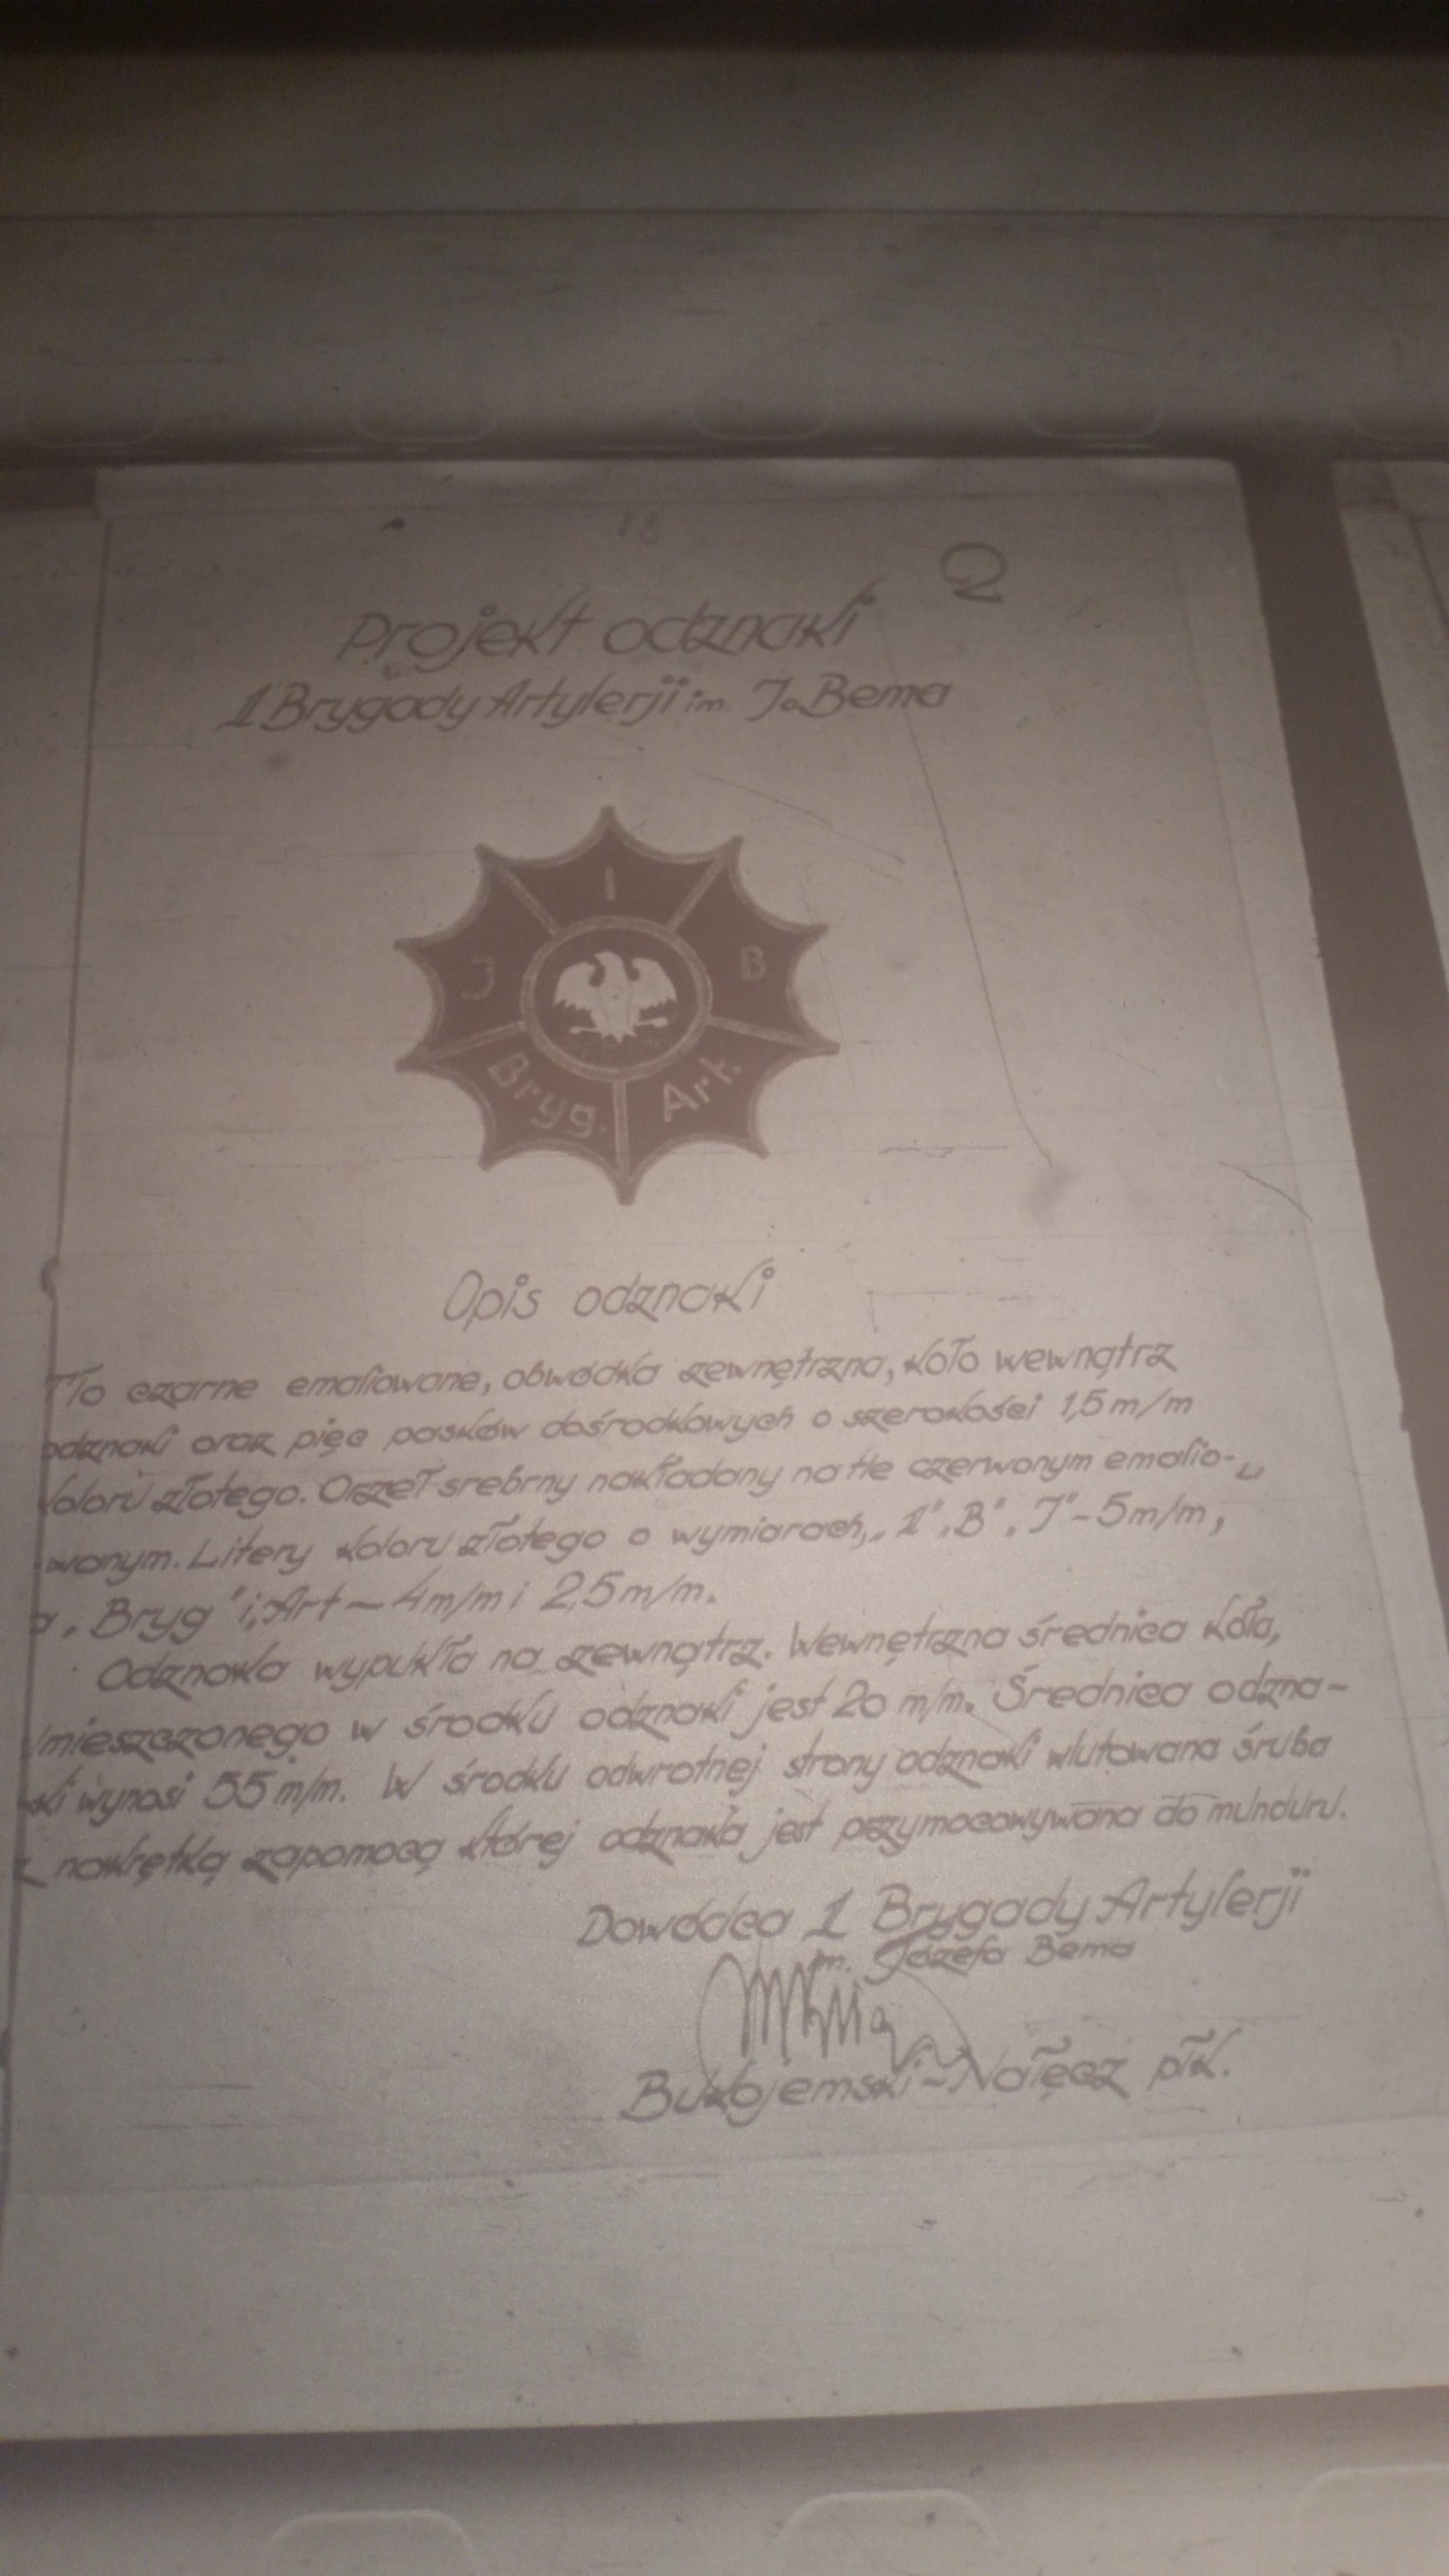 18
2
Projekt odznaki
1 Brygady Artylerji im. J. Bema
I
J
B
Bryg.
Art.
Opis odznaki
Tło czarne emaliowane, obwódka zewnętrzna, koło wewnątrz
odznaki oraz pięc pasków dośrodkowych o szerokości 1,5 m/m
koloru złotego. Orzeł srebrny nakładany na tle czerwonym emalio-
-wanym. Litery koloru złotego o wymiarach „1" „B" „J" - 5 m/m,
a „Bryg" i „Art - 4 m/m i 2,5 m/m.
Odznaka wypukła na zewnątrz. Wewnętrzna średnica koła,
umieszczonego w środku odznaki jest 20 m/m. Średnica odzna-
-ki wynosi 55 m/m. W środku odwrotnej strony odznaki wlutowana śruba
z nakrętką zapomocą której odznaka jest przymocowywana do munduru.
Dowódca 1 Brygady Artylerji
im. Józefa Bema
Bukojemski-Nałęcz płk.